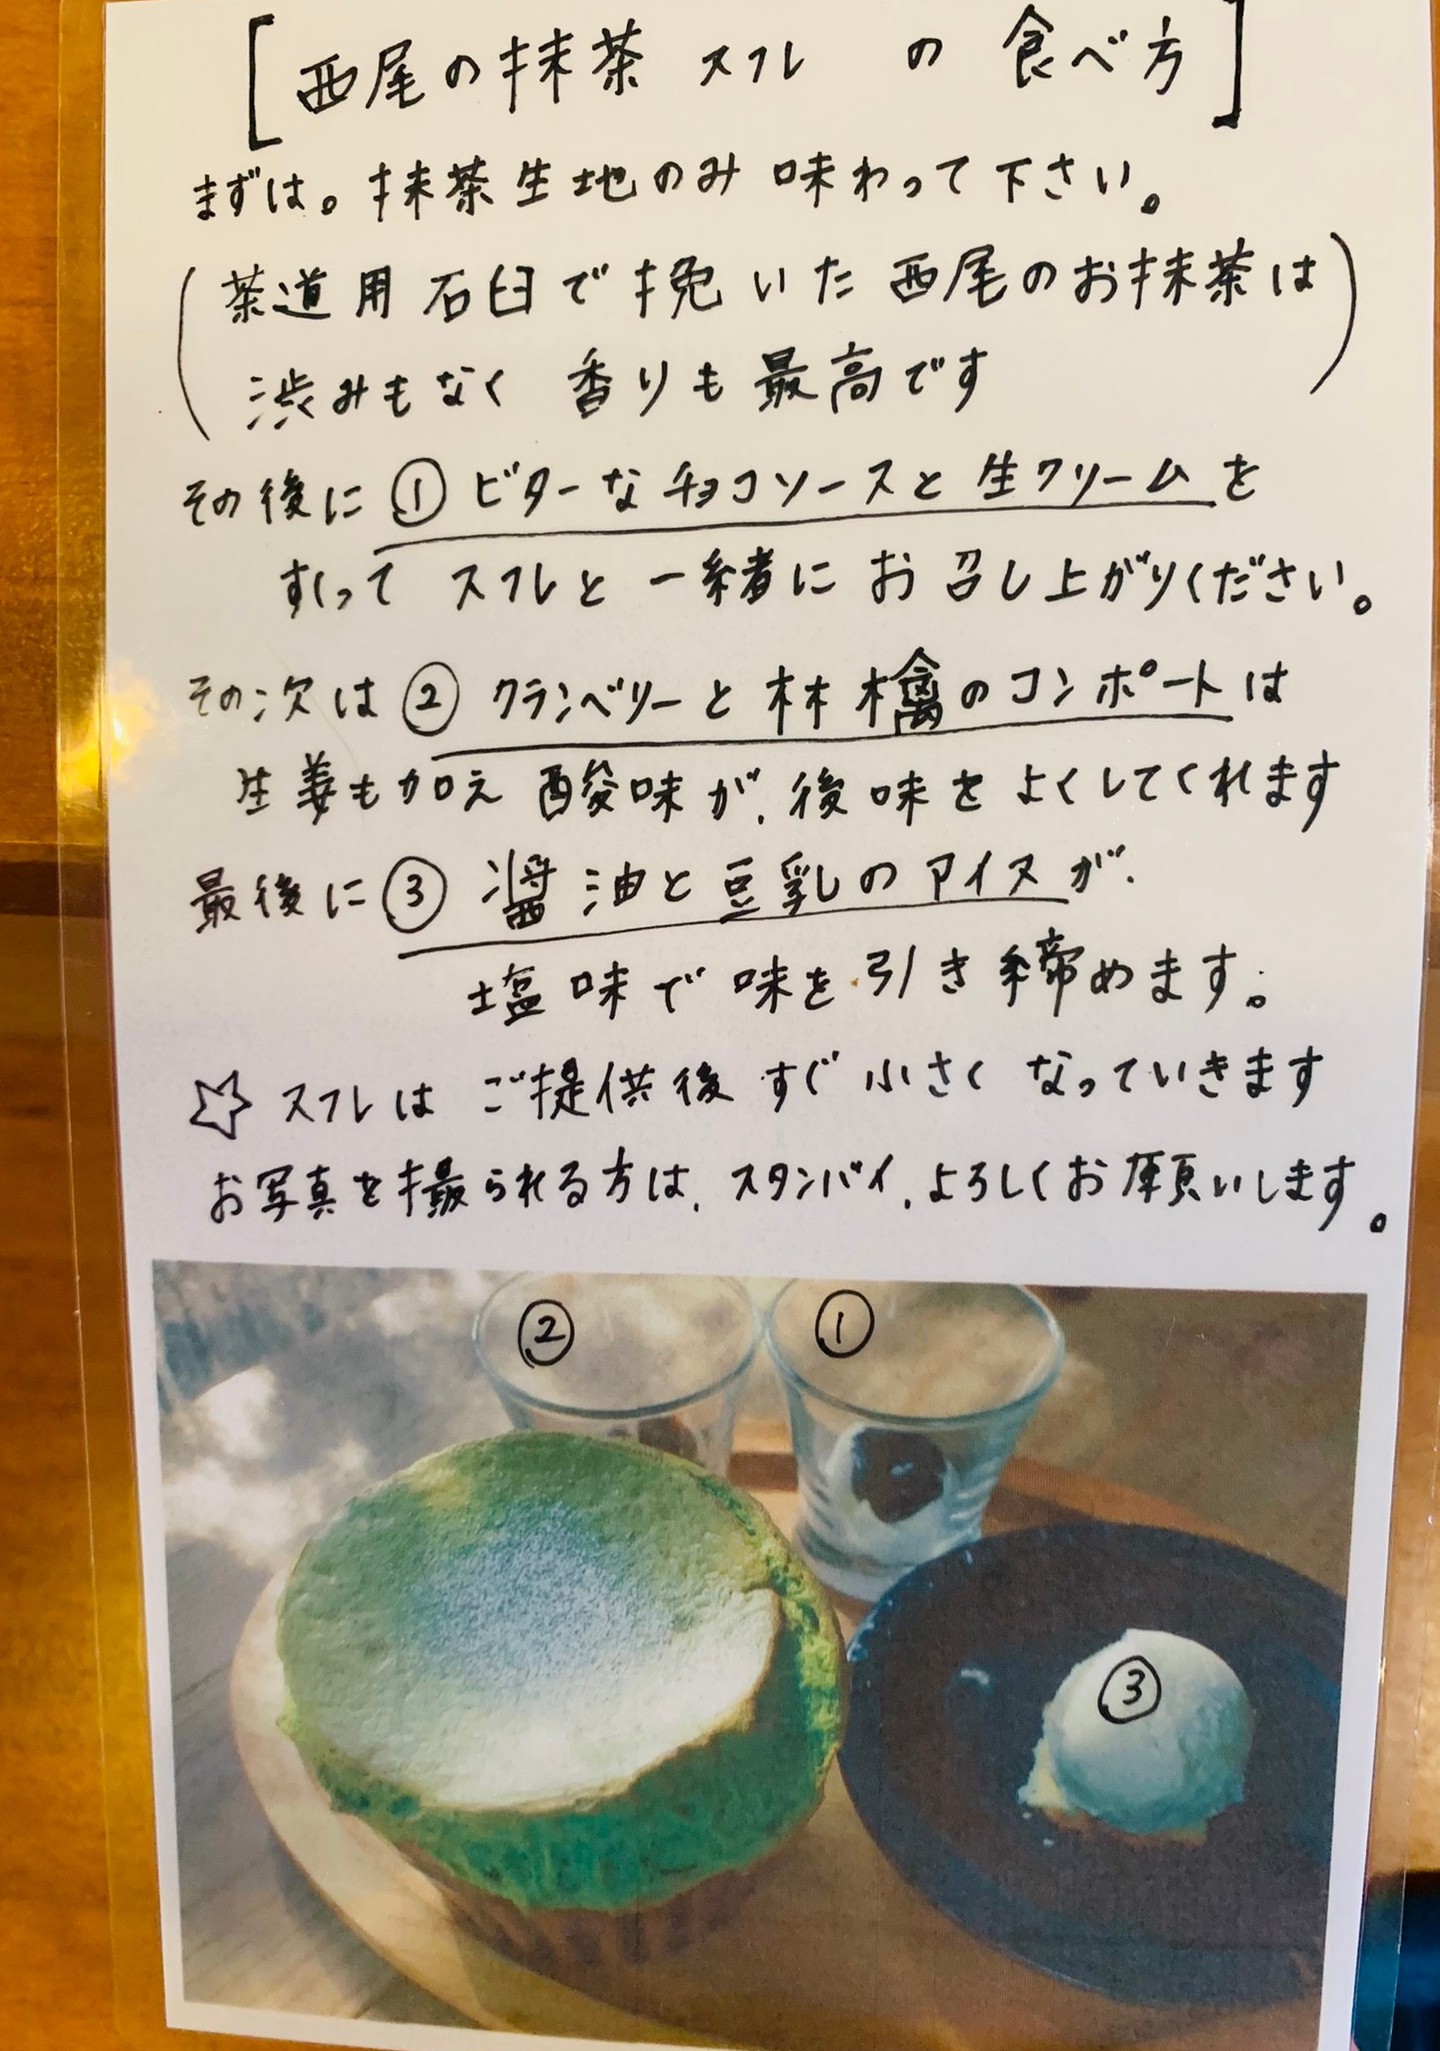 [西尾の抹茶スフレ の 食べ方]
まずは。抹茶生地のみ 味わって下さい。
(茶道用石臼で挽いた西尾のお抹茶は
渋みもなく 香りも最高です)
その後に ① ビターなチョコソースと生クリームを
すくって スフレと一緒に お召し上がりください。
その次は ② クランベリーと林檎のコンポートは
生姜も加え 酸味が、後味をよくしてくれます
最後に ③ 醤油と豆乳のアイスが、
塩味で味を引き締めます。
☆ スフレは ご提供後すぐ小さく なっていきます
お写真を撮られる方は、スタンバイ、よろしくお願いします。
② ①
③